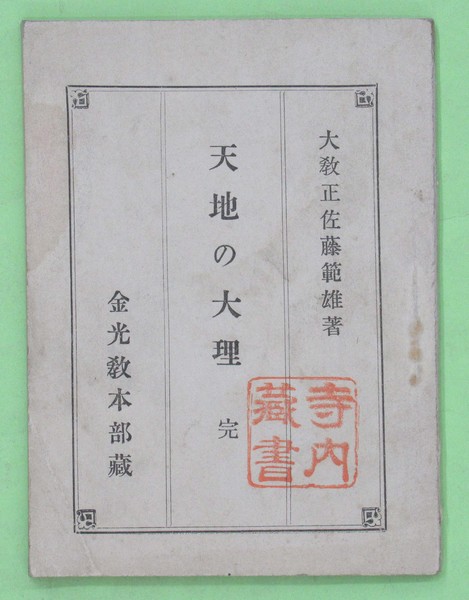 大教正佐藤範雄著
天地の大理 完
金光教本部藏
寺内
藏書